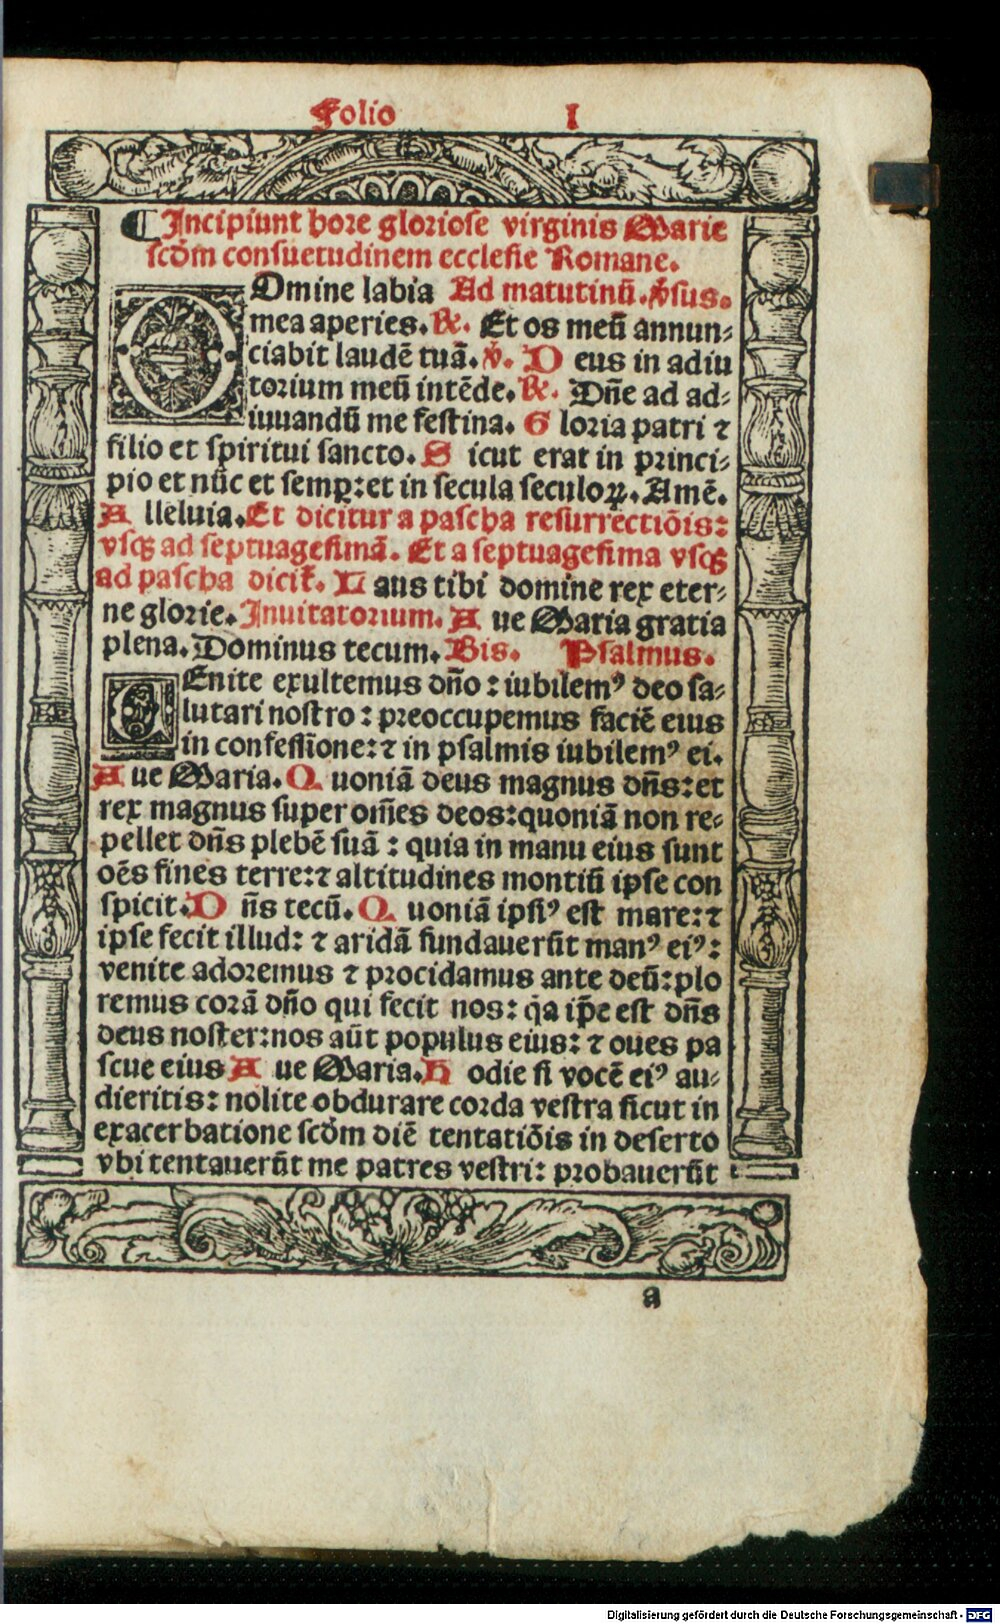 Folio I
¶ Incipiunt hore gloriose virginis Marie
scd̄m consuetudinem ecclesie Romane.
DOmine labia Ad matutinū. v̄sus.
mea aperies. ℟. Et os meū annun⸗
ciabit laudē tuā. ℣. D eus in adiu
torium meū intēde. ℟. Dn̄e ad ad⸗
iuuandū me festina. G loria patri ⁊
filio et spiritui sancto. S icut erat in princi⸗
pio et nūc et semꝑ: et in secula seculoꝝ. Amē.
A lleluia. Et dicitur a pascha resurrectiōis:
vsqꝫ ad septuagesimā. Et a septuagesima vsqꝫ
ad pascha dicit̄. L aus tibi domine rex eter⸗
ne glorie. Inuitatorium. A ue Maria gratia
plena. Dominus tecum. Bis. Psalmus.
VEnite exultemus dn̄o: iubilemꝰ deo sa⸗
lutari nostro: preoccupemus faciē eius
in confessione: ⁊ in psalmis iubilemꝰ ei.
A ue Maria. Q uoniā deus magnus dn̄s: et
rex magnus super om̄es deos: quoniā non re⸗
pellet dn̄s plebē suā: quia in manu eius sunt
oēs fines terre: ⁊ altitudines montiū ipse con
spicit. D n̄s tecū. Q uoniā ipsiꝰ est mare: ⁊
ipse fecit illud: ⁊ aridā fundauerūt manꝰ eiꝰ:
venite adoremus ⁊ procidamus ante deū: plo
remus corā dn̄o qui fecit nos: q̄a ip̄e est dn̄s
deus noster: nos aūt populus eius: ⁊ oues pa
scue eius A ue Maria. H odie si vocē eiꝰ au⸗
dieritis: nolite obdurare corda vestra sicut in
exacerbatione scd̄m diē tentatiōis in deserto
vbi tentauerūt me patres vestri: probauerūt
a
Digitalisierung gefördert durch die Deutsche Forschungsgemeinschaft - DFG